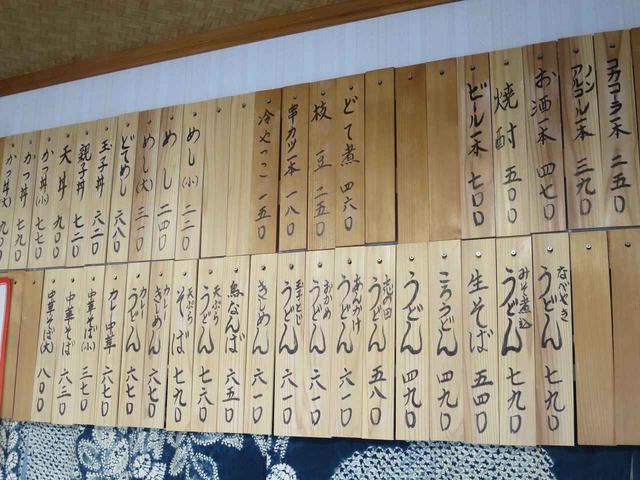 コカコーラ一本 二五〇
ノンアルコール一本 三九〇
お酒一本 四七〇
焼酎 五〇〇
ビール一本 七〇〇
どて煮 四六〇
枝豆 二五〇
串カツ一本 一八〇
冷やっこ 一五〇
めし(小) 二二〇
めし 二四〇
めし(大) 三一〇
どてめし 六八〇
玉子丼 六二〇
親子丼 七二〇
天丼 九〇〇
かつ丼(小) 七七〇
かつ丼 九〇〇
かつ丼(大)
なべやき うどん 七九〇
みそ煮込 うどん 七九〇
生そば 五四〇
ころうどん 四九〇
うどん 四九〇
志の田 うどん 五八〇
あんかけ うどん 六一〇
おかめ うどん 六一〇
玉子とじ うどん 六一〇
きしめん 六一〇
鳥なんば 六五〇
天ぷら うどん 七六〇
天ぷら そば 七九〇
カレー きしめん 六七〇
カレー うどん 六七〇
カレー中華 六七〇
中華そば(小) 三七〇
中華そば 六三〇
中華そば(大) 八〇〇